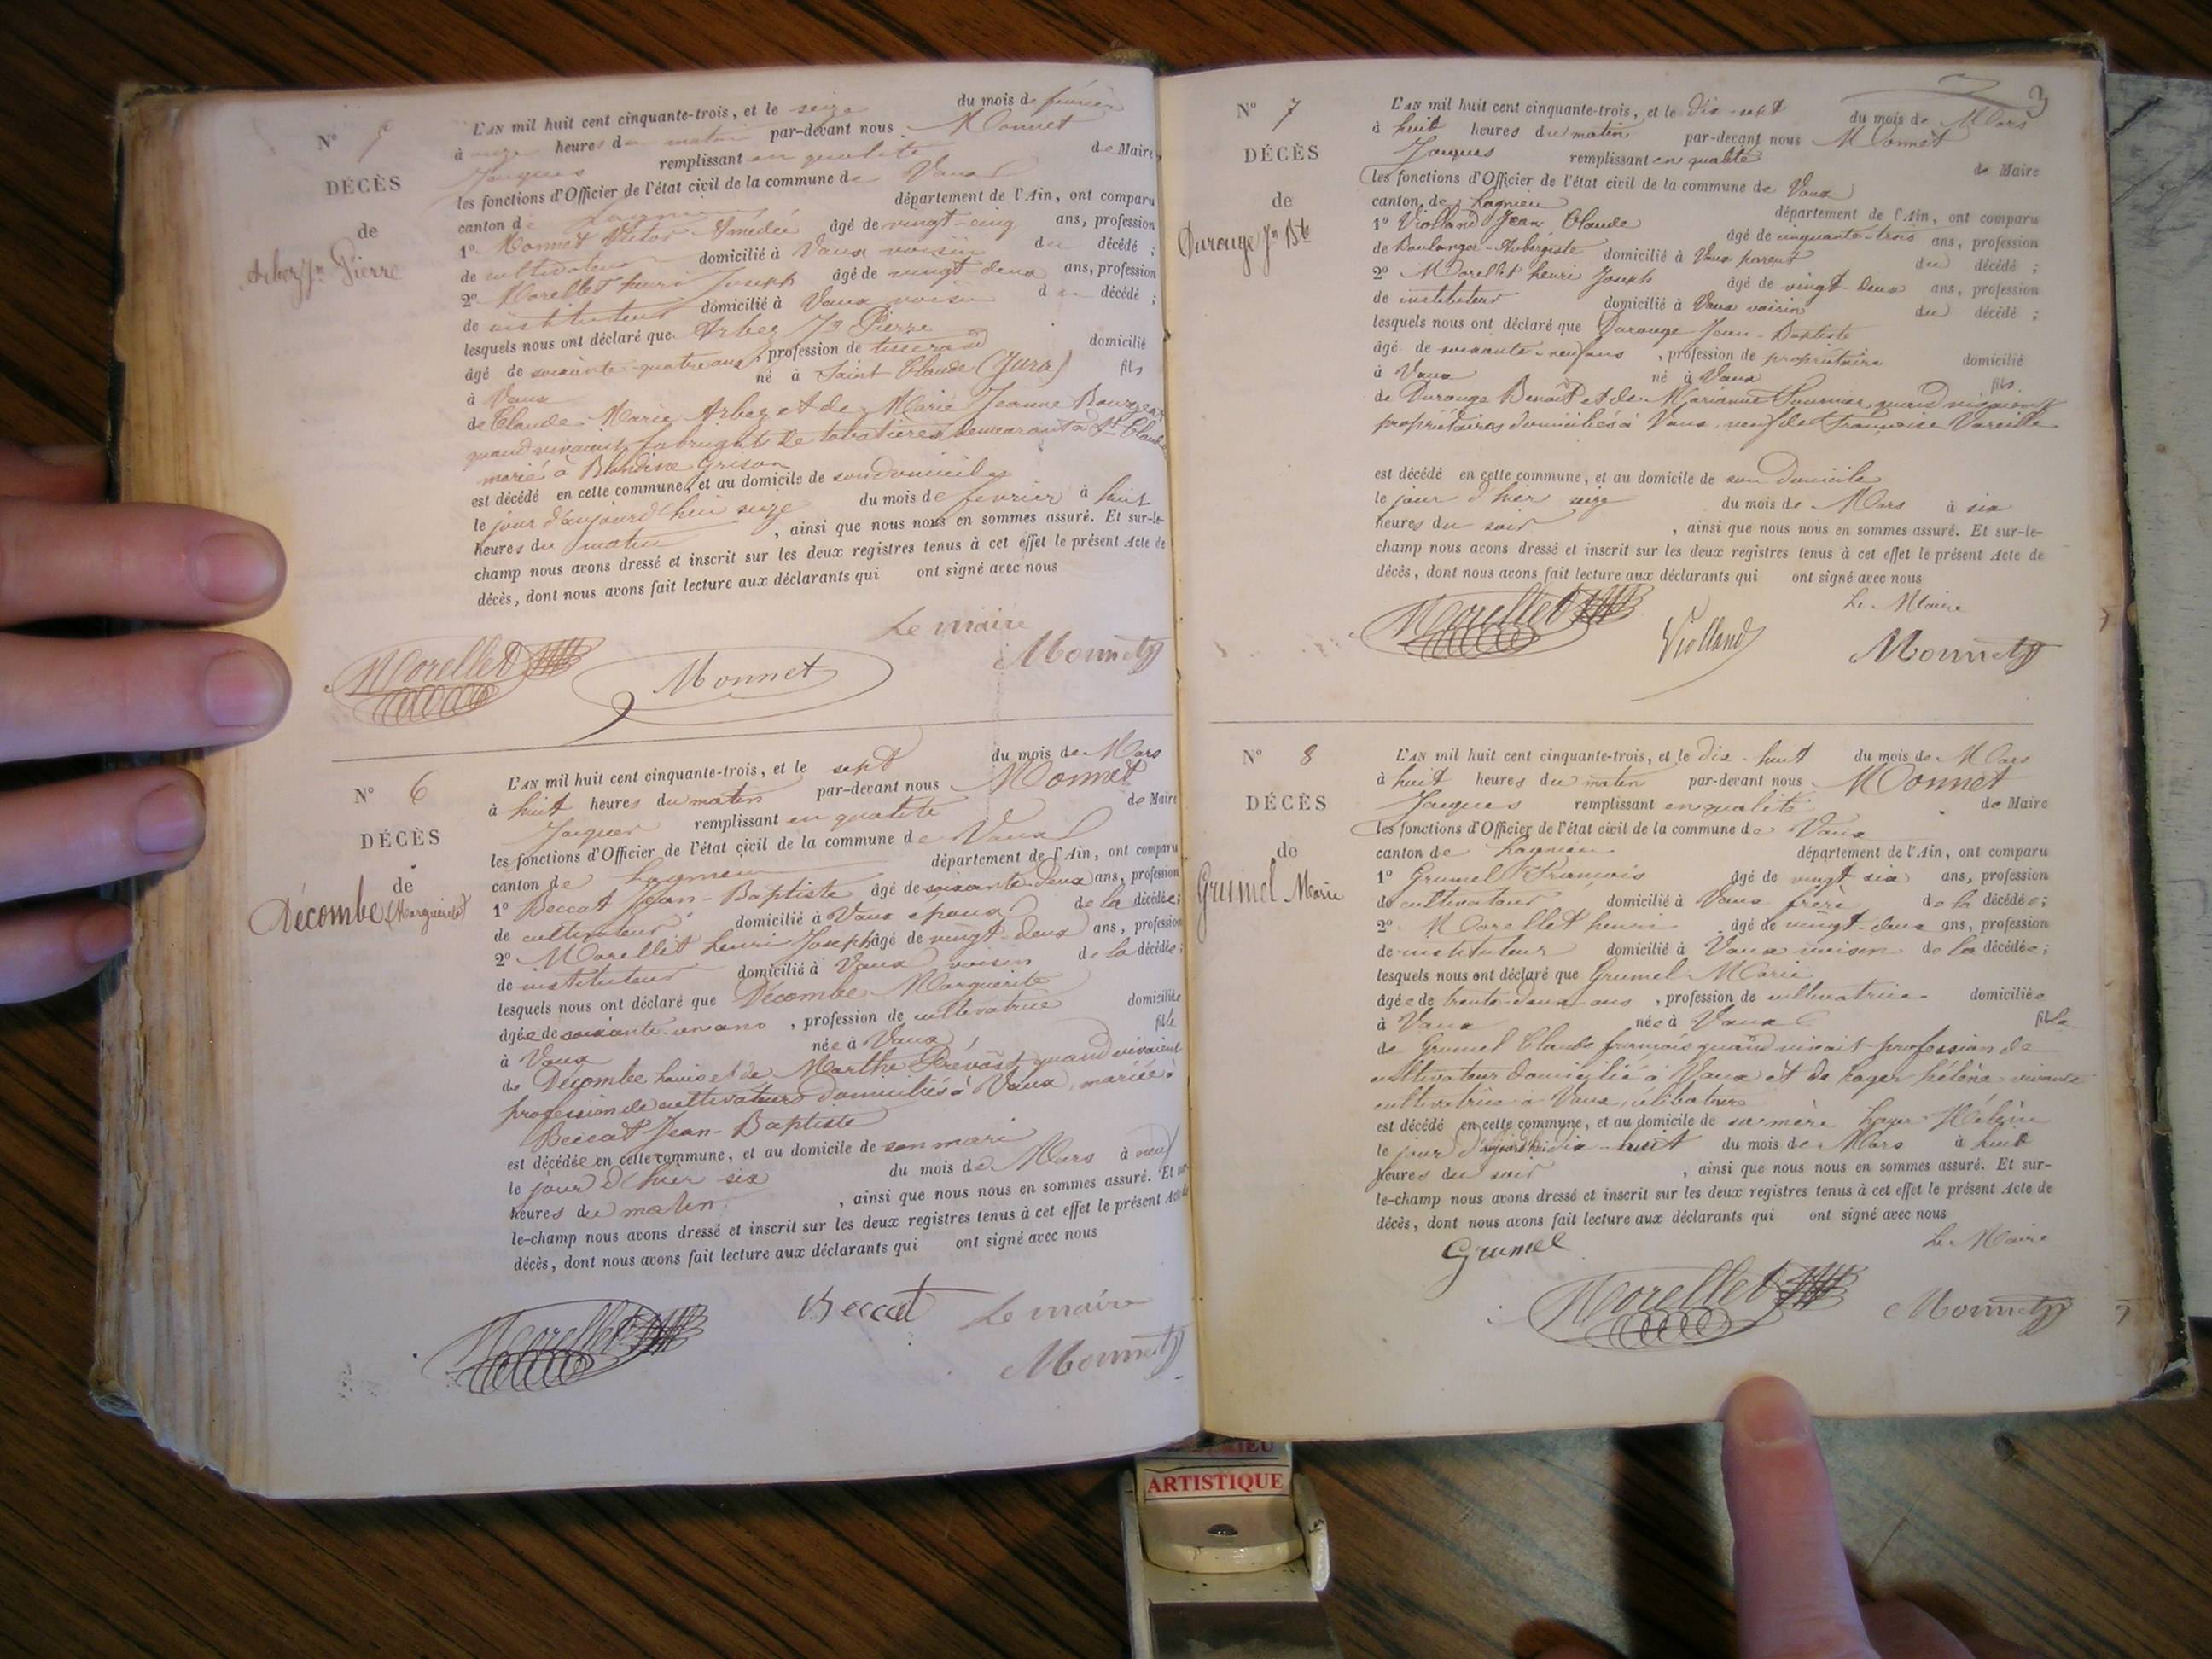 N° 5
DÉCÈS
de
Arbez Jn Pierre
L'AN mil huit cent cinquante-trois, et le seize du mois de février
à onze heures du matin par-devant nous Monnet
Jacques remplissant en qualité de Maire
les fonctions d'Officier de l'état civil de la commune de Vaux
canton de Lagnieu département de l'Ain, ont comparu
1° Monnet Victor Amédée âgé de vingt-cinq ans, profession
de cultivateur domicilié à Vaux voisin du décédé ;
2° Morellet henri Joseph âgé de vingt-deux ans, profession
de instituteur domicilié à Vaux voisin du décédé ;
lesquels nous ont déclaré que Arbez Jn Pierre
âgé de soixante-quatre ans, profession de tisserand domicilié
à Vaux né à Saint Claude (Jura) fils
de Claude Marie Arbez et de Marie Jeanne Bourgeat
quand vivaient fabricants de tabatières demeurant à St Claude
marié à Blandine Grison
est décédé en cette commune, et au domicile de son domicile
le jour d'aujourd'hui seize du mois de février à huit
heures du matin , ainsi que nous nous en sommes assuré. Et sur-le-
champ nous avons dressé et inscrit sur les deux registres tenus à cet effet le présent Acte de
décès, dont nous avons fait lecture aux déclarants qui ont signé avec nous
Le maire
Morellet Monnet Monnet
N° 6
DÉCÈS
de
Décombe (Marguerite)
L'AN mil huit cent cinquante-trois, et le sept du mois de Mars
à huit heures du matin par-devant nous Monnet
Jacques remplissant en qualité de Maire
les fonctions d'Officier de l'état civil de la commune de Vaux
canton de Lagnieu département de l'Ain, ont comparu
1° Beccat Jean-Baptiste âgé de soixante-deux ans, profession
de cultivateur domicilié à Vaux époux de la décédée ;
2° Morellet henri Joseph âgé de vingt-deux ans, profession
de instituteur domicilié à Vaux voisin de la décédée ;
lesquels nous ont déclaré que Décombe Marguerite
âgée de soixante-un ans , profession de cultivatrice domiciliée
à Vaux née à Vaux fille
de Décombe Louis et de Marthe Prévost quand vivaient
profession de cultivateurs domiciliés à Vaux, mariée à
Beccat Jean-Baptiste
est décédée en cette commune, et au domicile de son mari
le jour d'hier six du mois de Mars à neuf
heures du matin , ainsi que nous nous en sommes assuré. Et sur-
le-champ nous avons dressé et inscrit sur les deux registres tenus à cet effet le présent Acte de
décès, dont nous avons fait lecture aux déclarants qui ont signé avec nous
Morellet Beccat Le maire
Monnet
3
N° 7
DÉCÈS
de
Durouge Jn Bte
L'AN mil huit cent cinquante-trois, et le dix-sept du mois de Mars
à huit heures du matin par-devant nous Monnet
Jacques remplissant en qualité de Maire
les fonctions d'Officier de l'état civil de la commune de Vaux
canton de Lagnieu département de l'Ain, ont comparu
1° Violland Jean Claude âgé de cinquante-trois ans, profession
de Boulanger-Aubergiste domicilié à Vaux parent du décédé ;
2° Morellet henri Joseph âgé de vingt-deux ans, profession
de instituteur domicilié à Vaux voisin du décédé ;
lesquels nous ont déclaré que Durouge Jean-Baptiste
âgé de soixante-neuf ans , profession de propriétaire domicilié
à Vaux né à Vaux fils
de Durouge Benoit et de Marianne quand vivaient
propriétaires domiciliés à Vaux, veuf de Françoise Vareille
est décédé en cette commune, et au domicile de son domicile
le jour d'hier seize du mois de Mars à six
heures du soir , ainsi que nous nous en sommes assuré. Et sur-le-
champ nous avons dressé et inscrit sur les deux registres tenus à cet effet le présent Acte de
décès, dont nous avons fait lecture aux déclarants qui ont signé avec nous
Le Maire
Morellet Violland Monnet
N° 8
DÉCÈS
de
Grumel Marie
L'AN mil huit cent cinquante-trois, et le dix-huit du mois de Mars
à huit heures du matin par-devant nous Monnet
Jacques remplissant en qualité de Maire
les fonctions d'Officier de l'état civil de la commune de Vaux
canton de Lagnieu département de l'Ain, ont comparu
1° Grumel François âgé de vingt six ans, profession
de cultivateur domicilié à Vaux frère de la décédée ;
2° Morellet henri âgé de vingt-deux ans, profession
de instituteur domicilié à Vaux voisin de la décédée ;
lesquels nous ont déclaré que Grumel Marie
âgée de trente-deux ans , profession de cultivatrice domiciliée
à Vaux née à Vaux fille
de Grumel Claude françois quand vivait profession de
cultivateur domicilié à Vaux et de Loyer hélène vivante
cultivatrice à Vaux, célibataire
est décédé en cette commune, et au domicile de sa mère Loyer Hélène
le jour d'aujourd'hui dix-huit du mois de Mars à huit
heures du soir , ainsi que nous nous en sommes assuré. Et sur-
le-champ nous avons dressé et inscrit sur les deux registres tenus à cet effet le présent Acte de
décès, dont nous avons fait lecture aux déclarants qui ont signé avec nous
Grumel Le Maire
Morellet Monnet
ARTISTIQUE